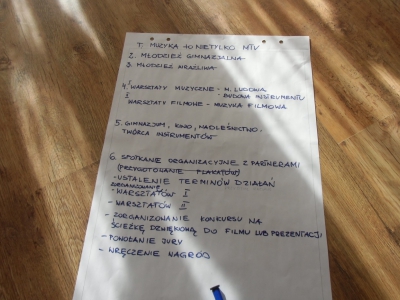 1. MUZYKA TO NIETYLKO MTV
2. MŁODZIEŻ GIMNAZJALNA
3. MŁODZIEŻ WRAŻLIWA
4. I WARSZTATY MUZYCZNE - M. LUDOWA
- BUDOWA INSTRUMENTU
II WARSZTATY FILMOWE - MUZYKA FILMOWA
5. GIMNAZJUM, KINO, NADLEŚNICTWO -
TWÓRCA INSTRUMENTÓW
6. SPOTKANIE ORGANIZACYJNE Z PARTNERAMI
(PRZYGOTOWANIE PLAKATÓW)
- USTALENIE TERMINÓW DZIAŁAŃ
ZORGANIZOWANIE
- WARSZTATÓW I
- WARSZTATÓW II
- ZORGANIZOWANIE KONKURSU NA
ŚCIEŻKĘ DŹWIĘKOWĄ DO FILMU LUB PREZENTACJI
- POWOŁANIE JURY
- WRĘCZENIE NAGRÓD